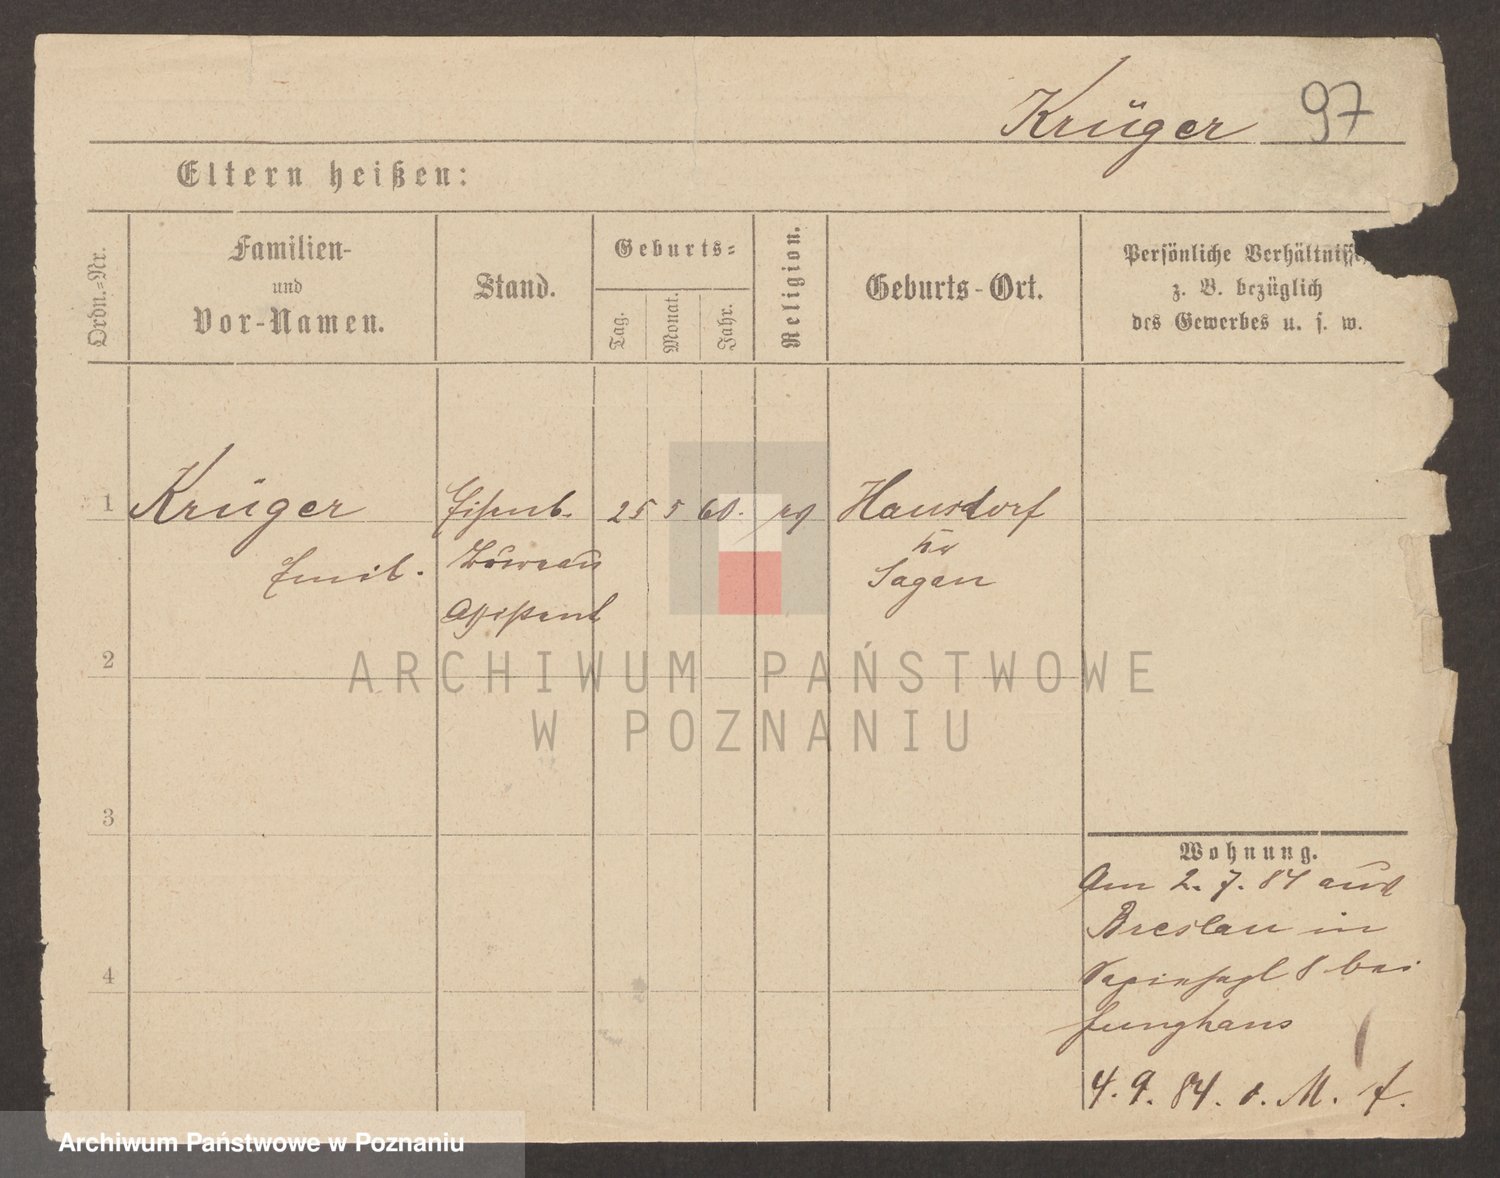 Krüger 97
Eltern heißen:
Ordn.-Nr.
Familien-
und
Vor-Namen.
Stand.
Geburts-
Tag.
Monat.
Jahr.
Religion.
Geburts-Ort.
Persönliche Verhältnisse,
z. B. bezüglich
des Gewerbes u. s. w.
1 Krüger Eisenb. 25 5 60. Hansdorf
Kr
Emil. Büreau Sagan
Assistent
2
3
4
Wohnung.
Am 2. 7. 84 aus
Breslau in
8 bei
Junghans
4. 9. 84. M.
ARCHIWUM PAŃSTWOWE
W POZNANIU
Archiwum Państwowe w Poznaniu